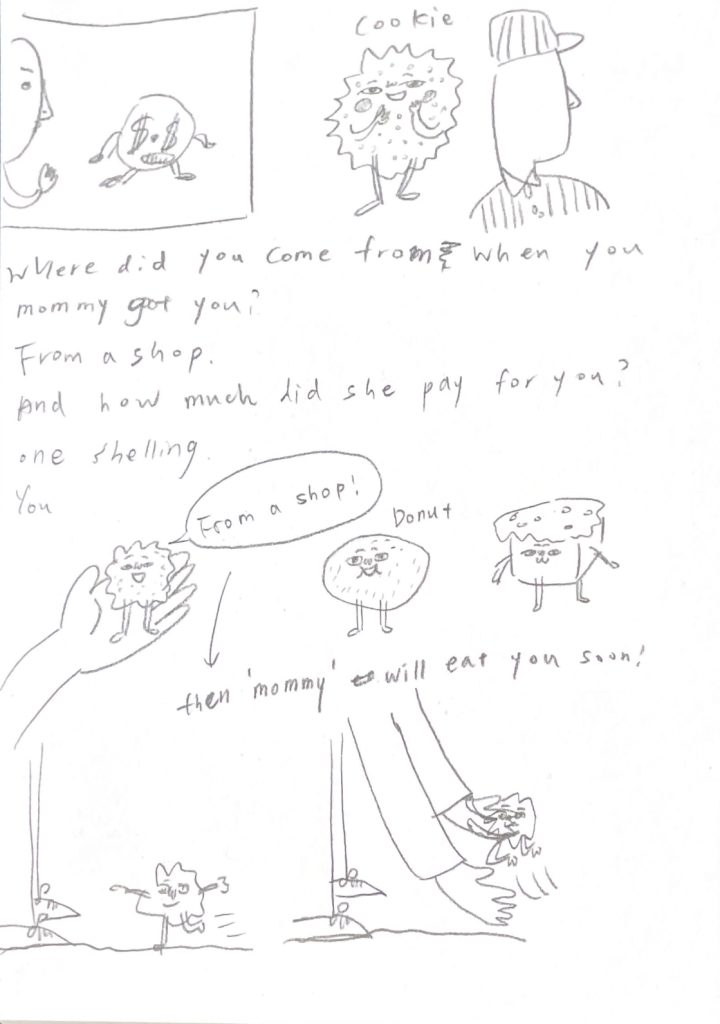 Cookie
$ $
Where did you come from when you
mommy got you?
From a shop.
And how much did she pay for you?
one shelling.
You
From a shop!
Donut
then 'mommy' will eat you soon!